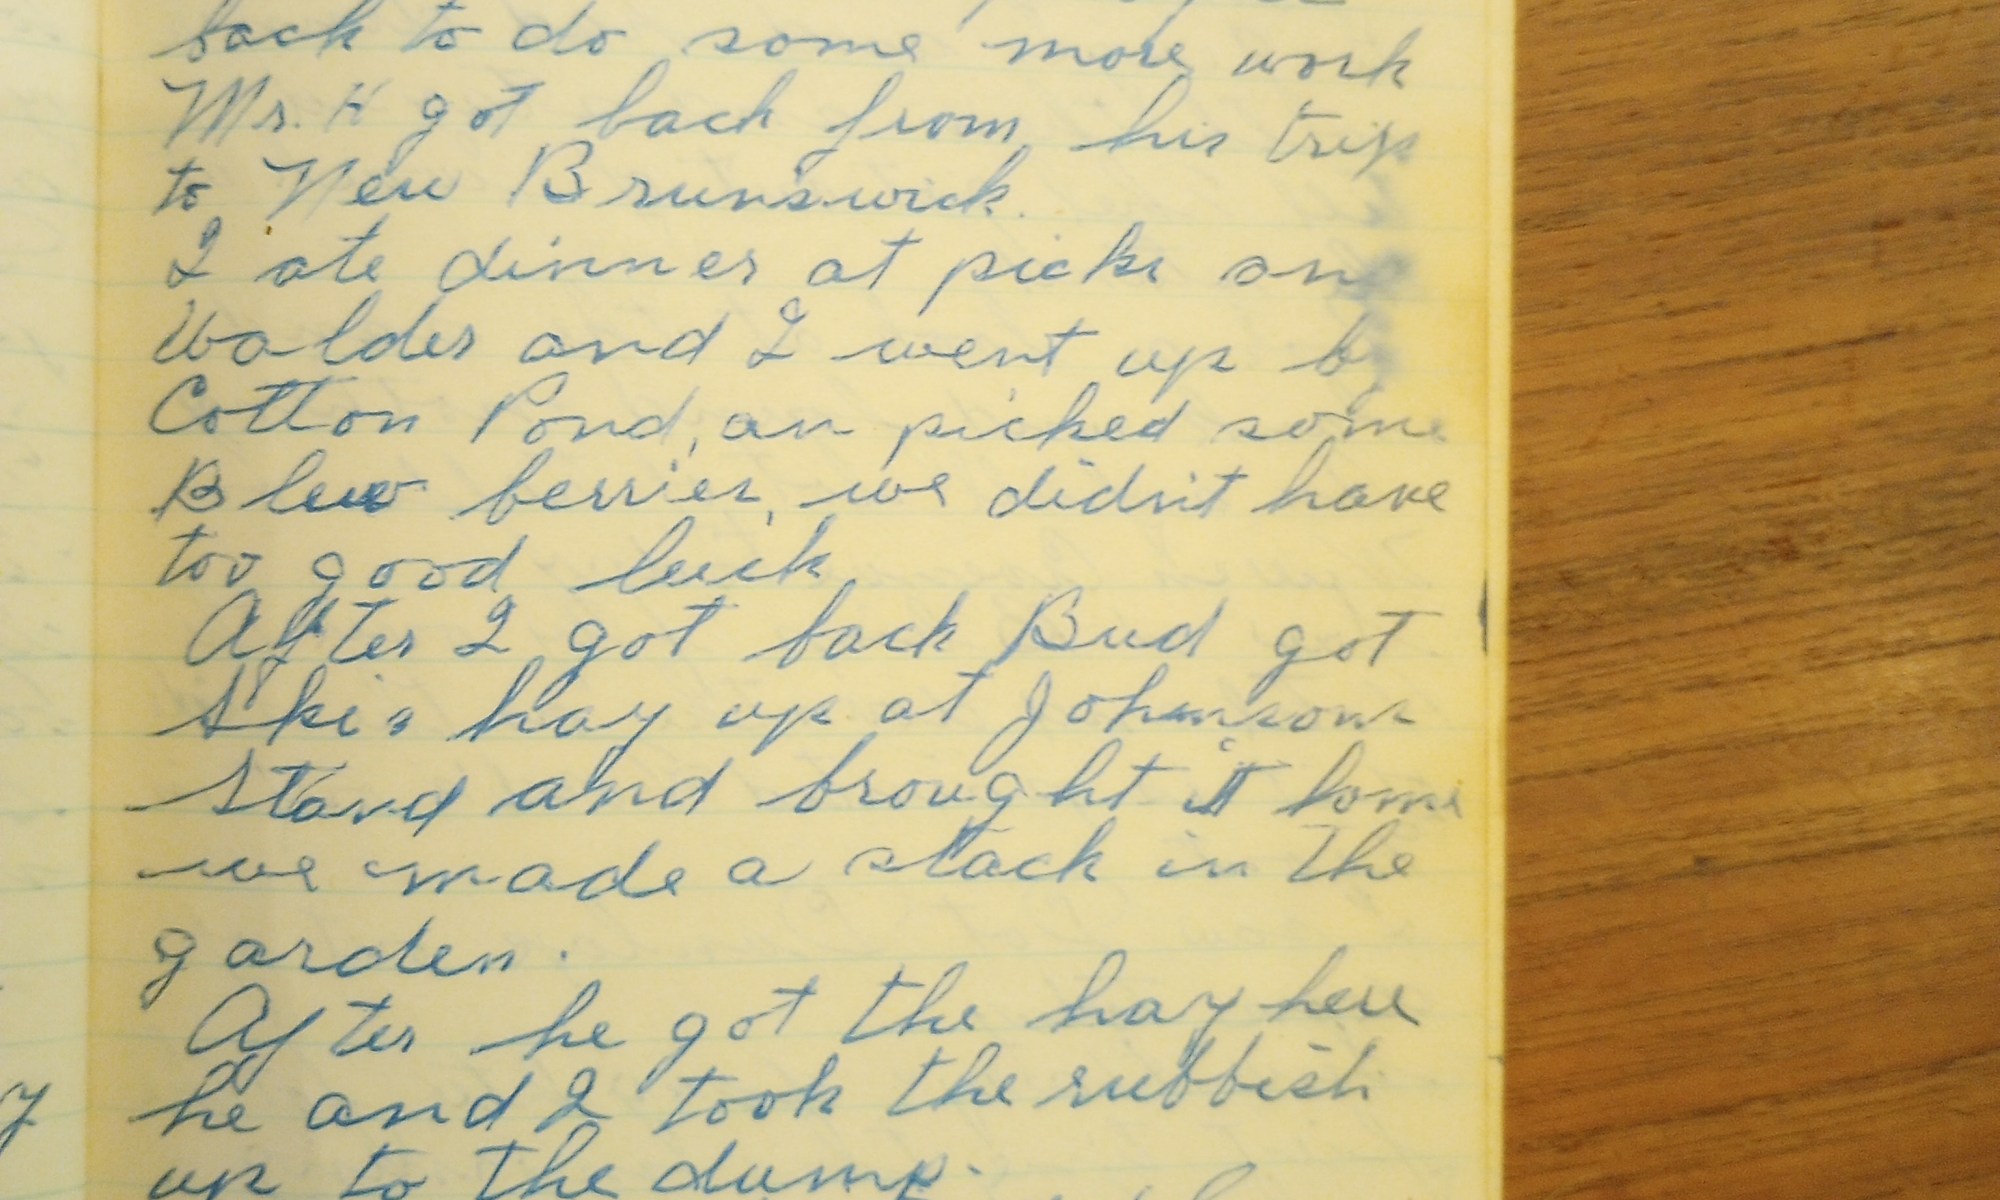 back to do some more work
Mr. H got back from his trip
to New Brunswick.
I ate dinner at picks an
Walder and I went up by
Cotton Pond, an picked some
Blew berries, we didn't have
too good luck
After I got back Bud got
Ski's hay up at Johnsons
Stand and brought it home
we made a stack in the
garden.
After he got the hay here
he and I took the rubbish
up to the dump.